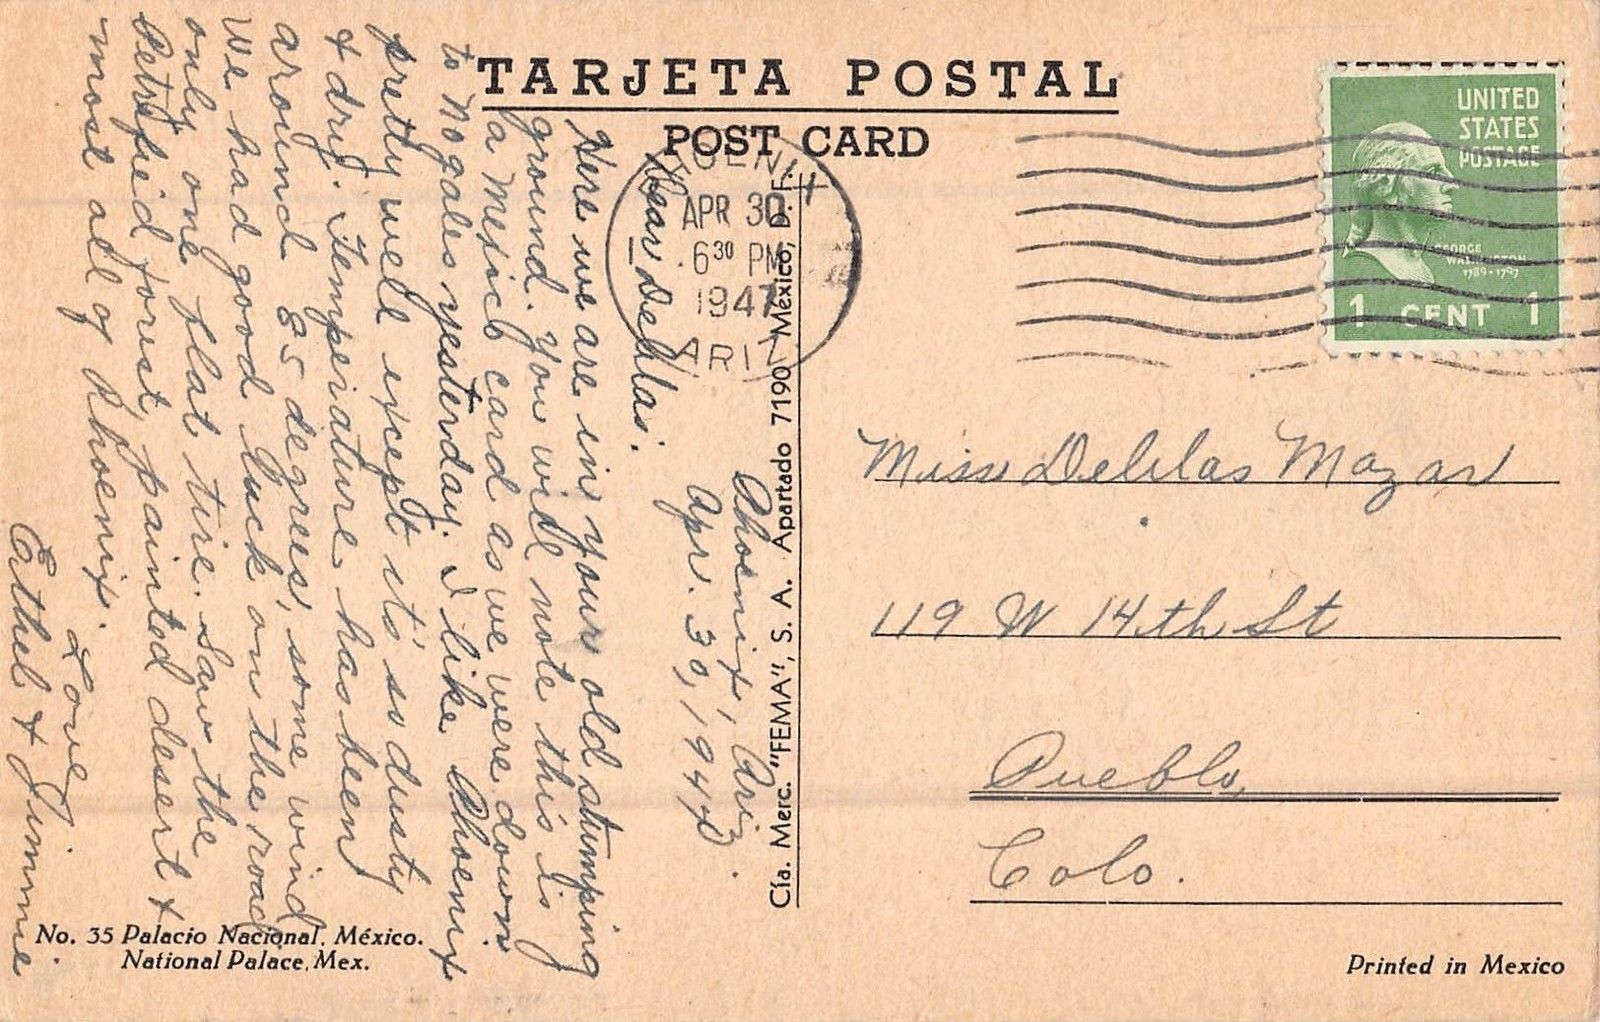 TARJETA POSTAL
POST CARD
PHOENIX
APR 30
6 30 PM
1947
ARIZ
UNITED
STATES
POSTAGE
GEORGE
WASHINGTON
1789-1797
1 CENT 1
Phoenix, Ariz.
Apr. 30, 1947
Dear Delilas:
Here we are in your old stumping
ground. You will note this is
a Mexico card as we were down
to Nogales yesterday. I like Phoenix
pretty well except it's so dusty
& dry. Temperature has been
around 85 degrees, some wind
We had good luck on the road
only one flat tire. Saw the
Petrified forest, painted desert &
most all of Phoenix.
Love
Eathel & Jimmie
Cía. Merc. "FEMA", S. A. Apartado 7190 México, D. F.
Miss Delilas Mazar
119 W 14th St
Pueblo,
Colo.
No. 35 Palacio Nacional, México.
National Palace, Mex.
Printed in Mexico